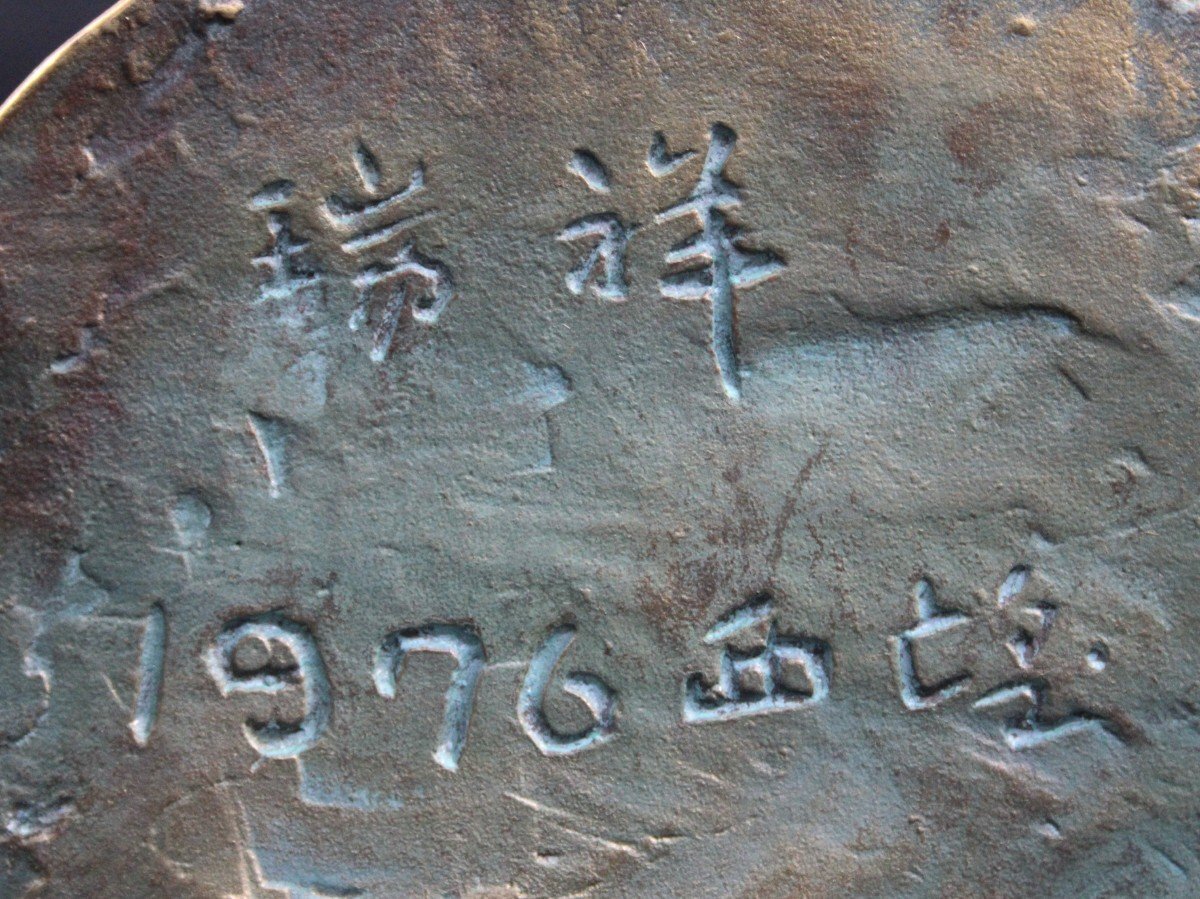 瑞祥
1976西望